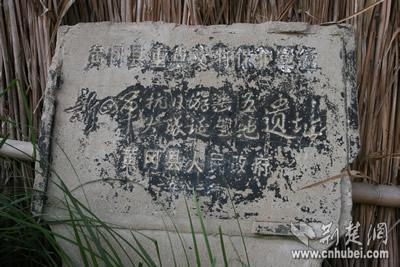 黄冈县重点文物保护单位
新四军抗日游击五
大队诞生地遗址
黄冈县人民政府
荆楚网
www.cnhubei.com